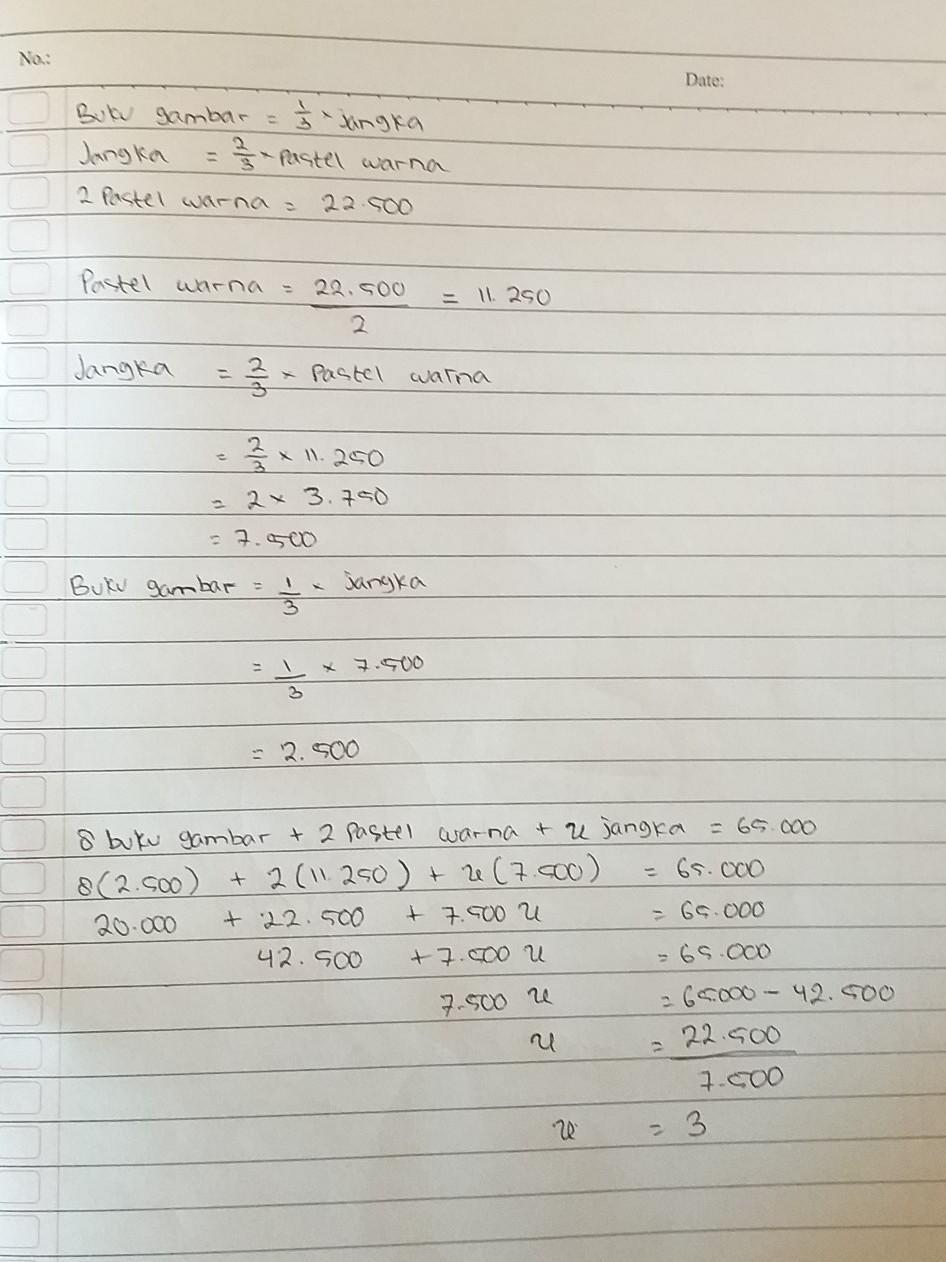 No.:
Date:
Buku gambar = 1/3 × jangka
Jangka = 2/3 × Pastel warna
2 Pastel warna = 22.500
Pastel warna = 22.500/2 = 11.250
Jangka = 2/3 × Pastel warna
= 2/3 × 11.250
= 2 × 3.750
= 7.500
Buku gambar = 1/3 × jangka
= 1/3 × 7.500
= 2.500
8 buku gambar + 2 Pastel warna + x jangka = 65.000
8(2.500) + 2(11.250) + x(7.500) = 65.000
20.000 + 22.500 + 7.500 x = 65.000
42.500 + 7.500 x = 65.000
7.500 x = 65000 - 42.500
x = 22.500/7.500
x = 3